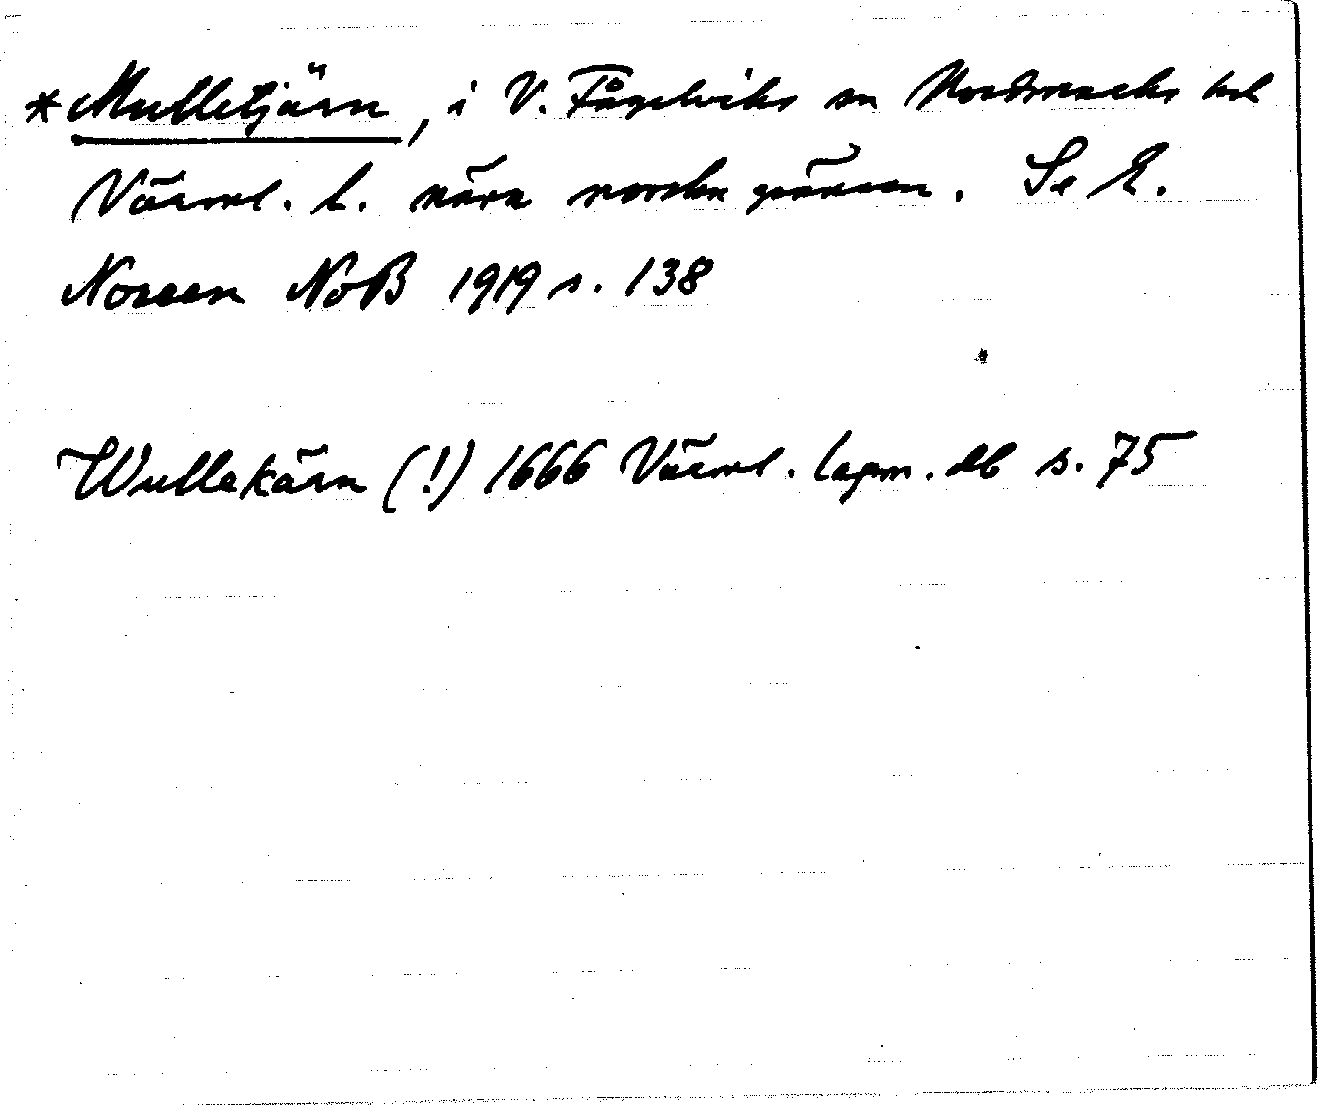 * Mulletjärn, i V. Fågelviks sn Nordmarks hd
Värml. l. nära norska gränsen. Se E.
Noreen NoB 1919 s. 138
Wullekärn (!) 1666 Värml. lagm. db s. 75